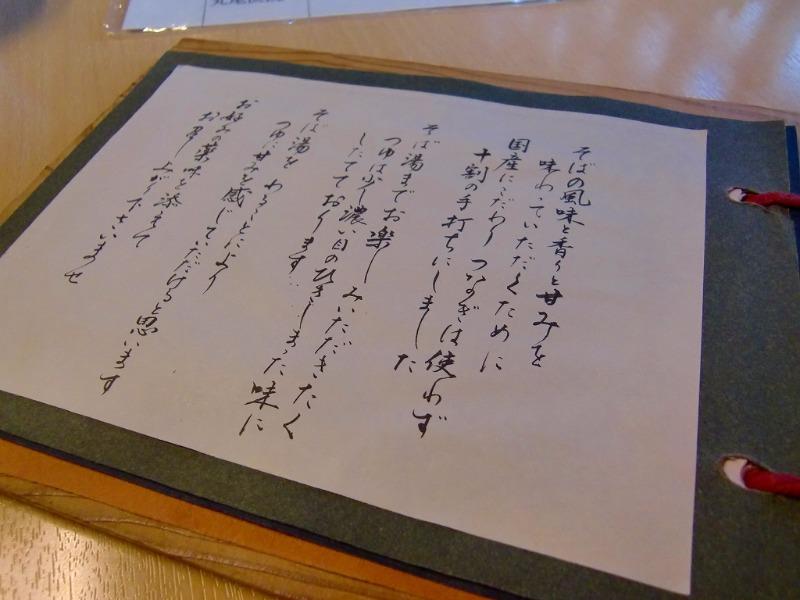 そばの風味と香りと甘みを
味わっていただくために
国産にこだわり つなぎは使わず
十割の手打ちにしました
そば湯までお楽しみいただきたく
つゆは少し濃い目のひきしまった味に
したてております
そば湯を わることにより
つゆに甘みを感じていただけると思います
お好みの薬味を添えて
お召し上がり下さいませ